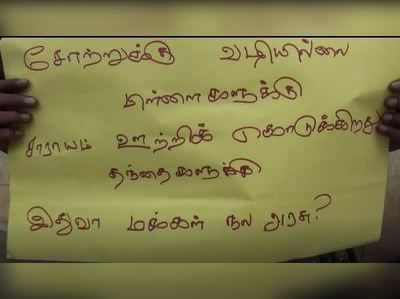 சோற்றுக்கு வழியில்லை
பிள்ளைகளுக்கு
சாராயம் ஊற்றிக் கொடுக்கிறது
தந்தைகளுக்கு
இதுவா மக்கள் நல அரசு?